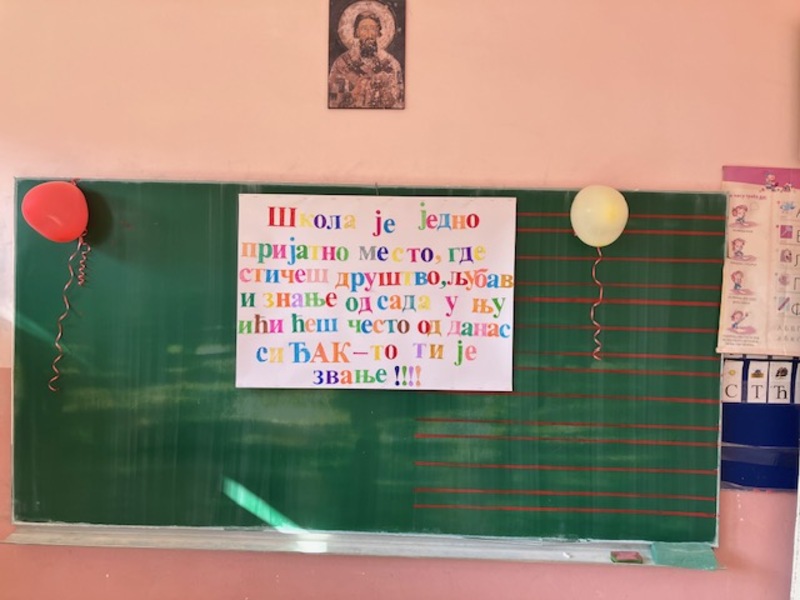 Школа је једно
пријатно место, где
стичеш друштво, љубав
и знање од сада у њу
ићи ћеш често од данас
си ЂАК – то ти је
звање !!!!
С Т Ћ